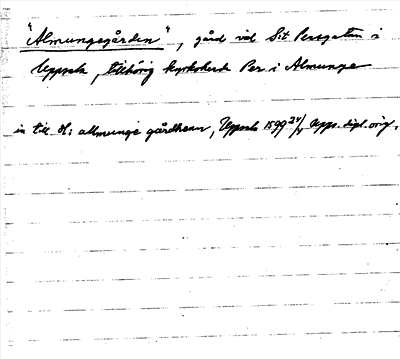 "Almungegården", gård vid S:t Persgatan i
Uppsala, tillhörig kyrkoherde Per i Almunge
in till H: allmunge gårdhenn, Uppsala 1599 24/, Upps. dipl. orig.